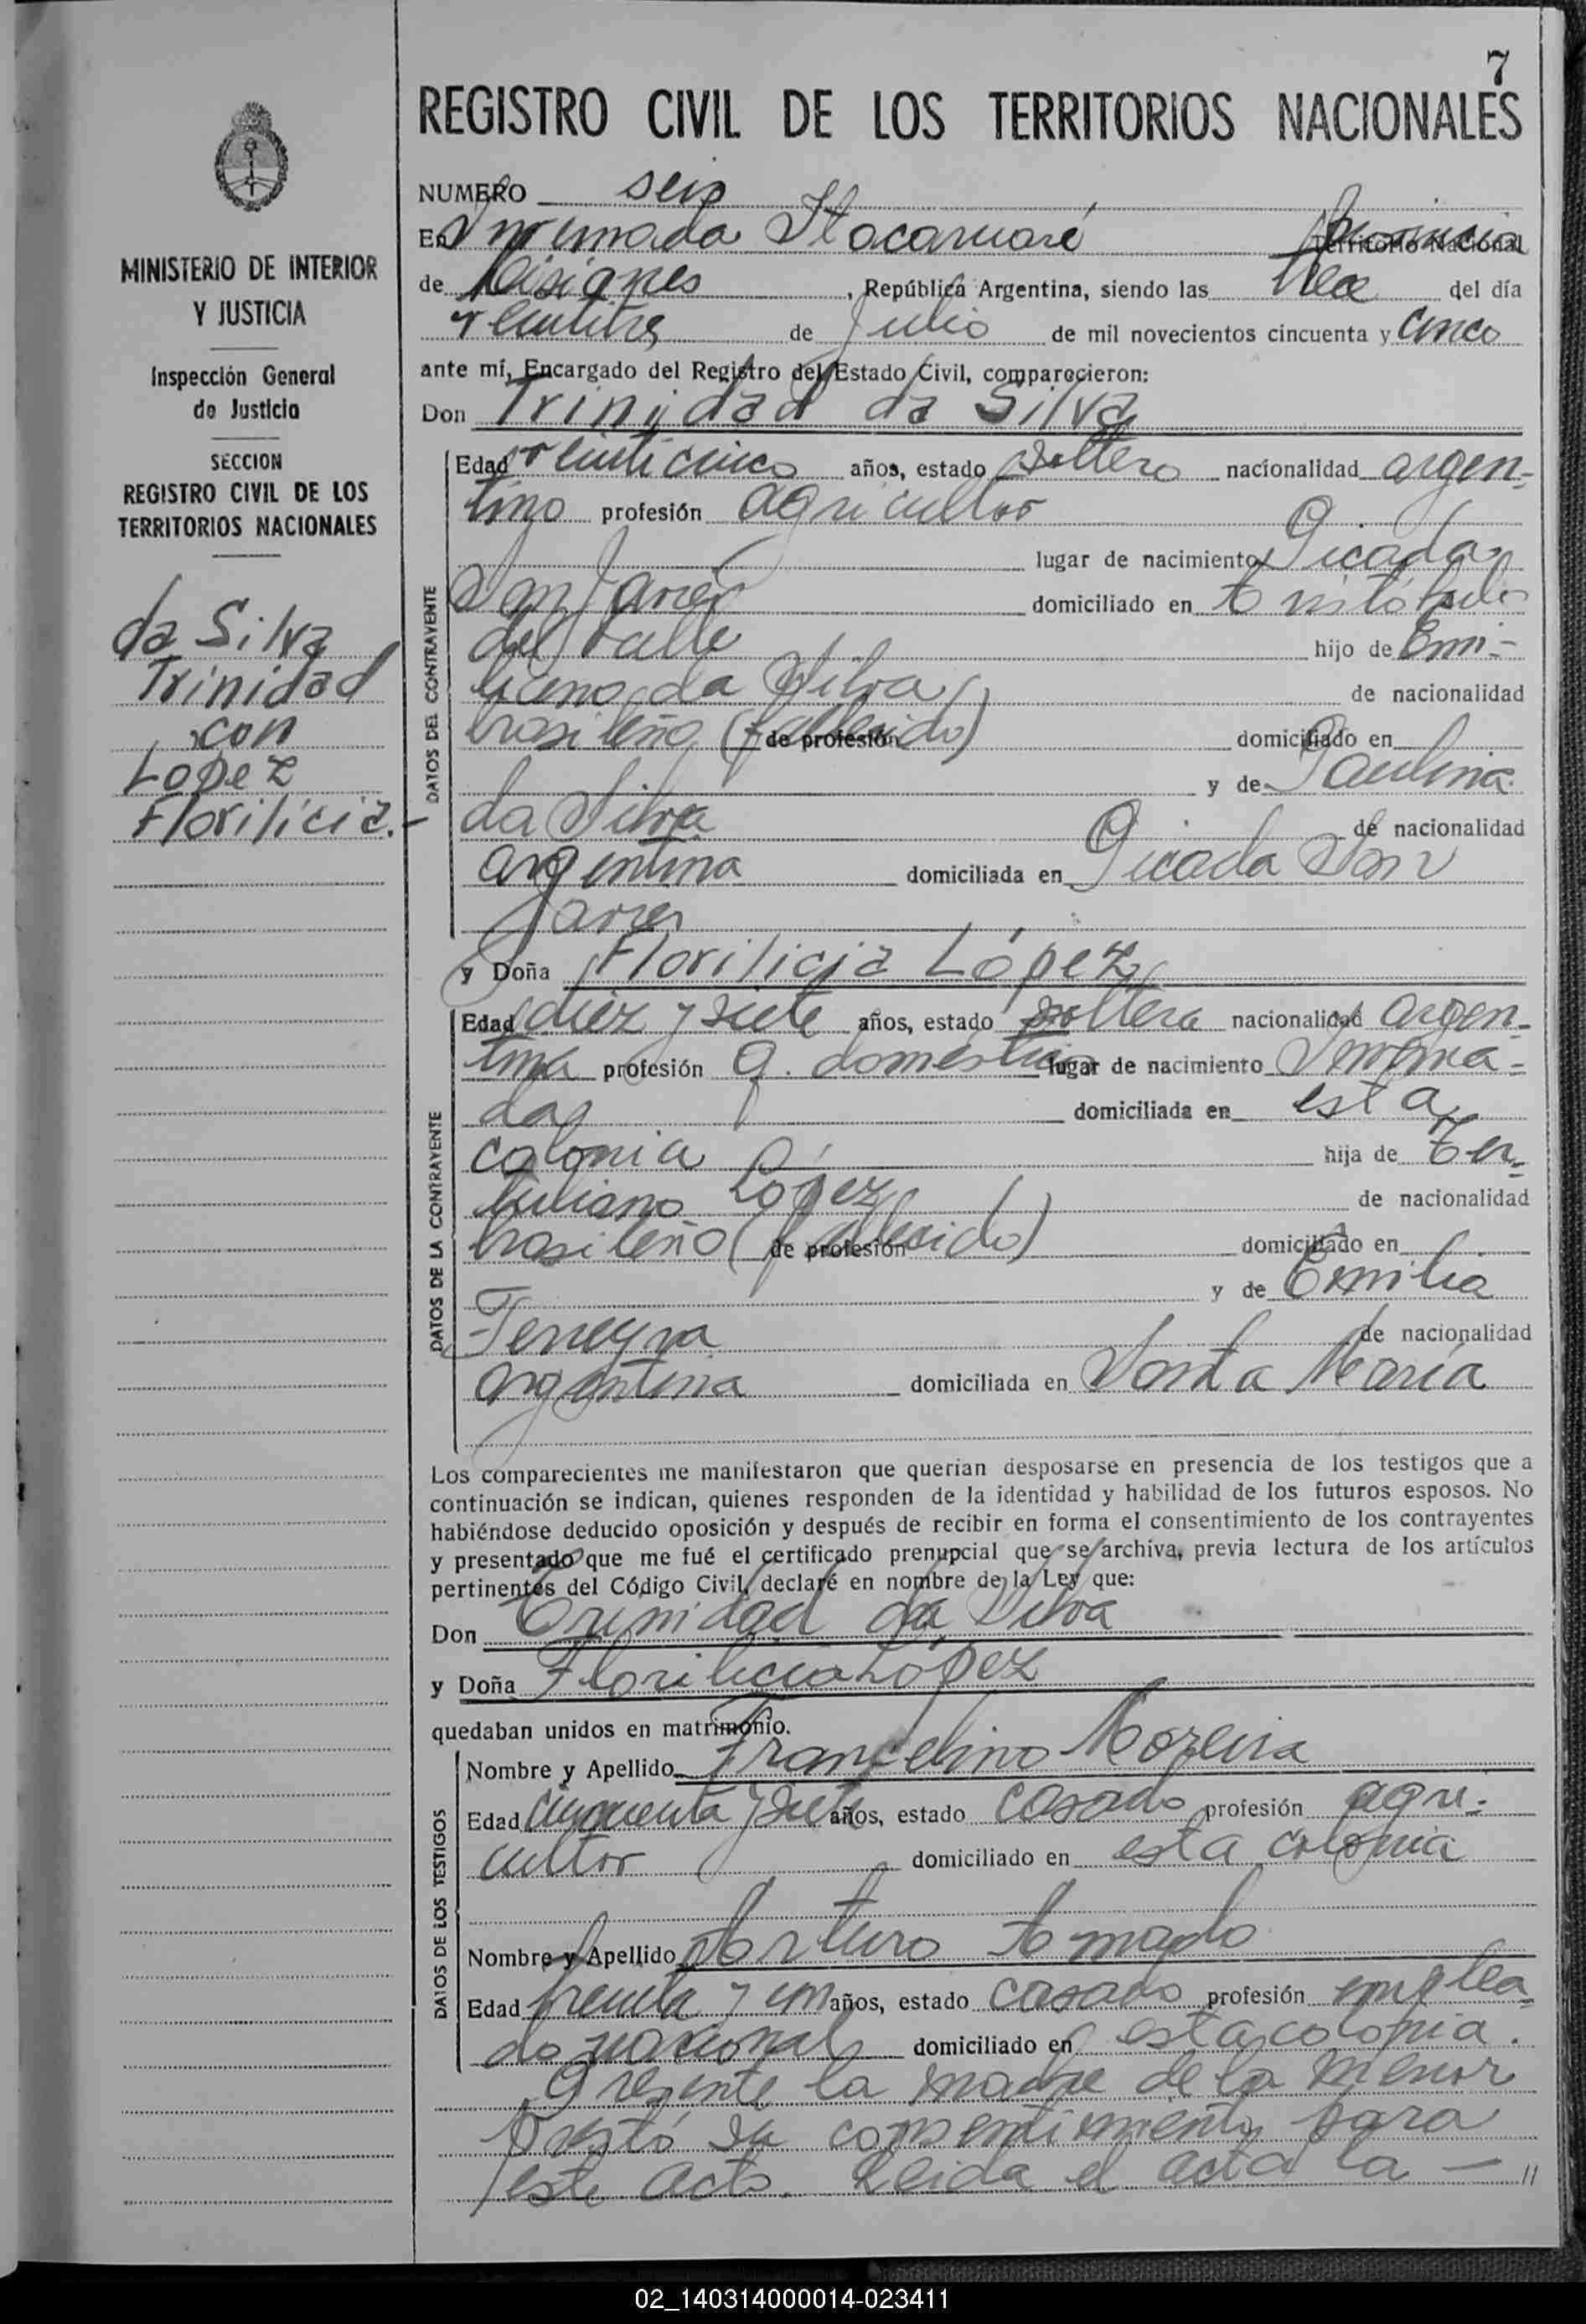 7
REGISTRO CIVIL DE LOS TERRITORIOS NACIONALES
MINISTERIO DE INTERIOR
Y JUSTICIA
Inspección General
de Justicia
SECCION
REGISTRO CIVIL DE LOS
TERRITORIOS NACIONALES
da Silva
Trinidad
con
Lopez
Florilicia.-
NUMERO seis
En Invernada Itacaruaré Territorio Nacional Provincia
de Misiones, República Argentina, siendo las diez del día
veintitres de Julio de mil novecientos cincuenta y cinco
ante mí, Encargado del Registro del Estado Civil, comparecieron:
Don Trinidad da Silva
DATOS DEL CONTRAYENTE
Edad veinticinco años, estado soltero nacionalidad argen-
tino profesión agricultor
lugar de nacimiento Picada
San Javier domiciliado en Aristóbulo
del Valle hijo de Emi-
liano da Silva de nacionalidad
brasileño (fallecido) de profesión domiciliado en
y de Paulina
da Silva de nacionalidad
argentina domiciliada en Picada San
Javier
y Doña Florilicia López
DATOS DE LA CONTRAYENTE
Edad diez y siete años, estado soltera nacionalidad argen-
tina profesión q. domésticos lugar de nacimiento Inverna-
da domiciliada en esta
colonia hija de Ter-
tuliano López de nacionalidad
brasileño (fallecido) de profesión domiciliado en
y de Emilia
Ferreyra de nacionalidad
argentina domiciliada en Santa María
Los comparecientes me manifestaron que querian desposarse en presencia de los testigos que a
continuación se indican, quienes responden de la identidad y habilidad de los futuros esposos. No
habiéndose deducido oposición y después de recibir en forma el consentimiento de los contrayentes
y presentado que me fué el certificado prenupcial que se archiva, previa lectura de los artículos
pertinentes del Código Civil, declaré en nombre de la Ley que:
Don Trinidad da Silva
y Doña Florilicia López
quedaban unidos en matrimonio.
DATOS DE LOS TESTIGOS
Nombre y Apellido Francelino Moreira
Edad cincuenta y siete años, estado casado profesión agri-
cultor domiciliado en esta colonia
Nombre y Apellido Arturo Amado
Edad treinta y un años, estado casado profesión emplea
do nacional domiciliado en esta colonia.
Presente la madre de la menor
prestó su consentimiento para
este acto. Leida el acta la — //
02_140314000014-023411